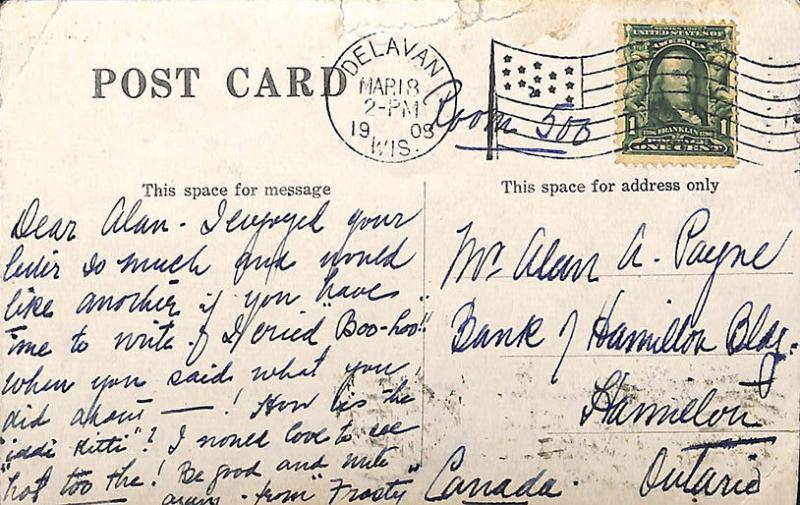 POST CARD
DELAVAN
MAR 18
2-PM
19 08
WIS.
SERIES 1902
UNITED STATES OF
AMERICA
1 FRANKLIN 1
ONE CENT
Room 500
This space for message
This space for address only
Dear Alan - I enjoyed your
letter so much and would
like another if you have
time to write. I cried "Boo-hoo"!
When you said what you
did about — ! How is the
"iddi Kitti"? I would love to see
hot too the! Be good and write
again - from "Frosty"
Mr. Alan A. Payne
Bank of Hamilton Bldg.
Hamilton
Ontario
Canada.